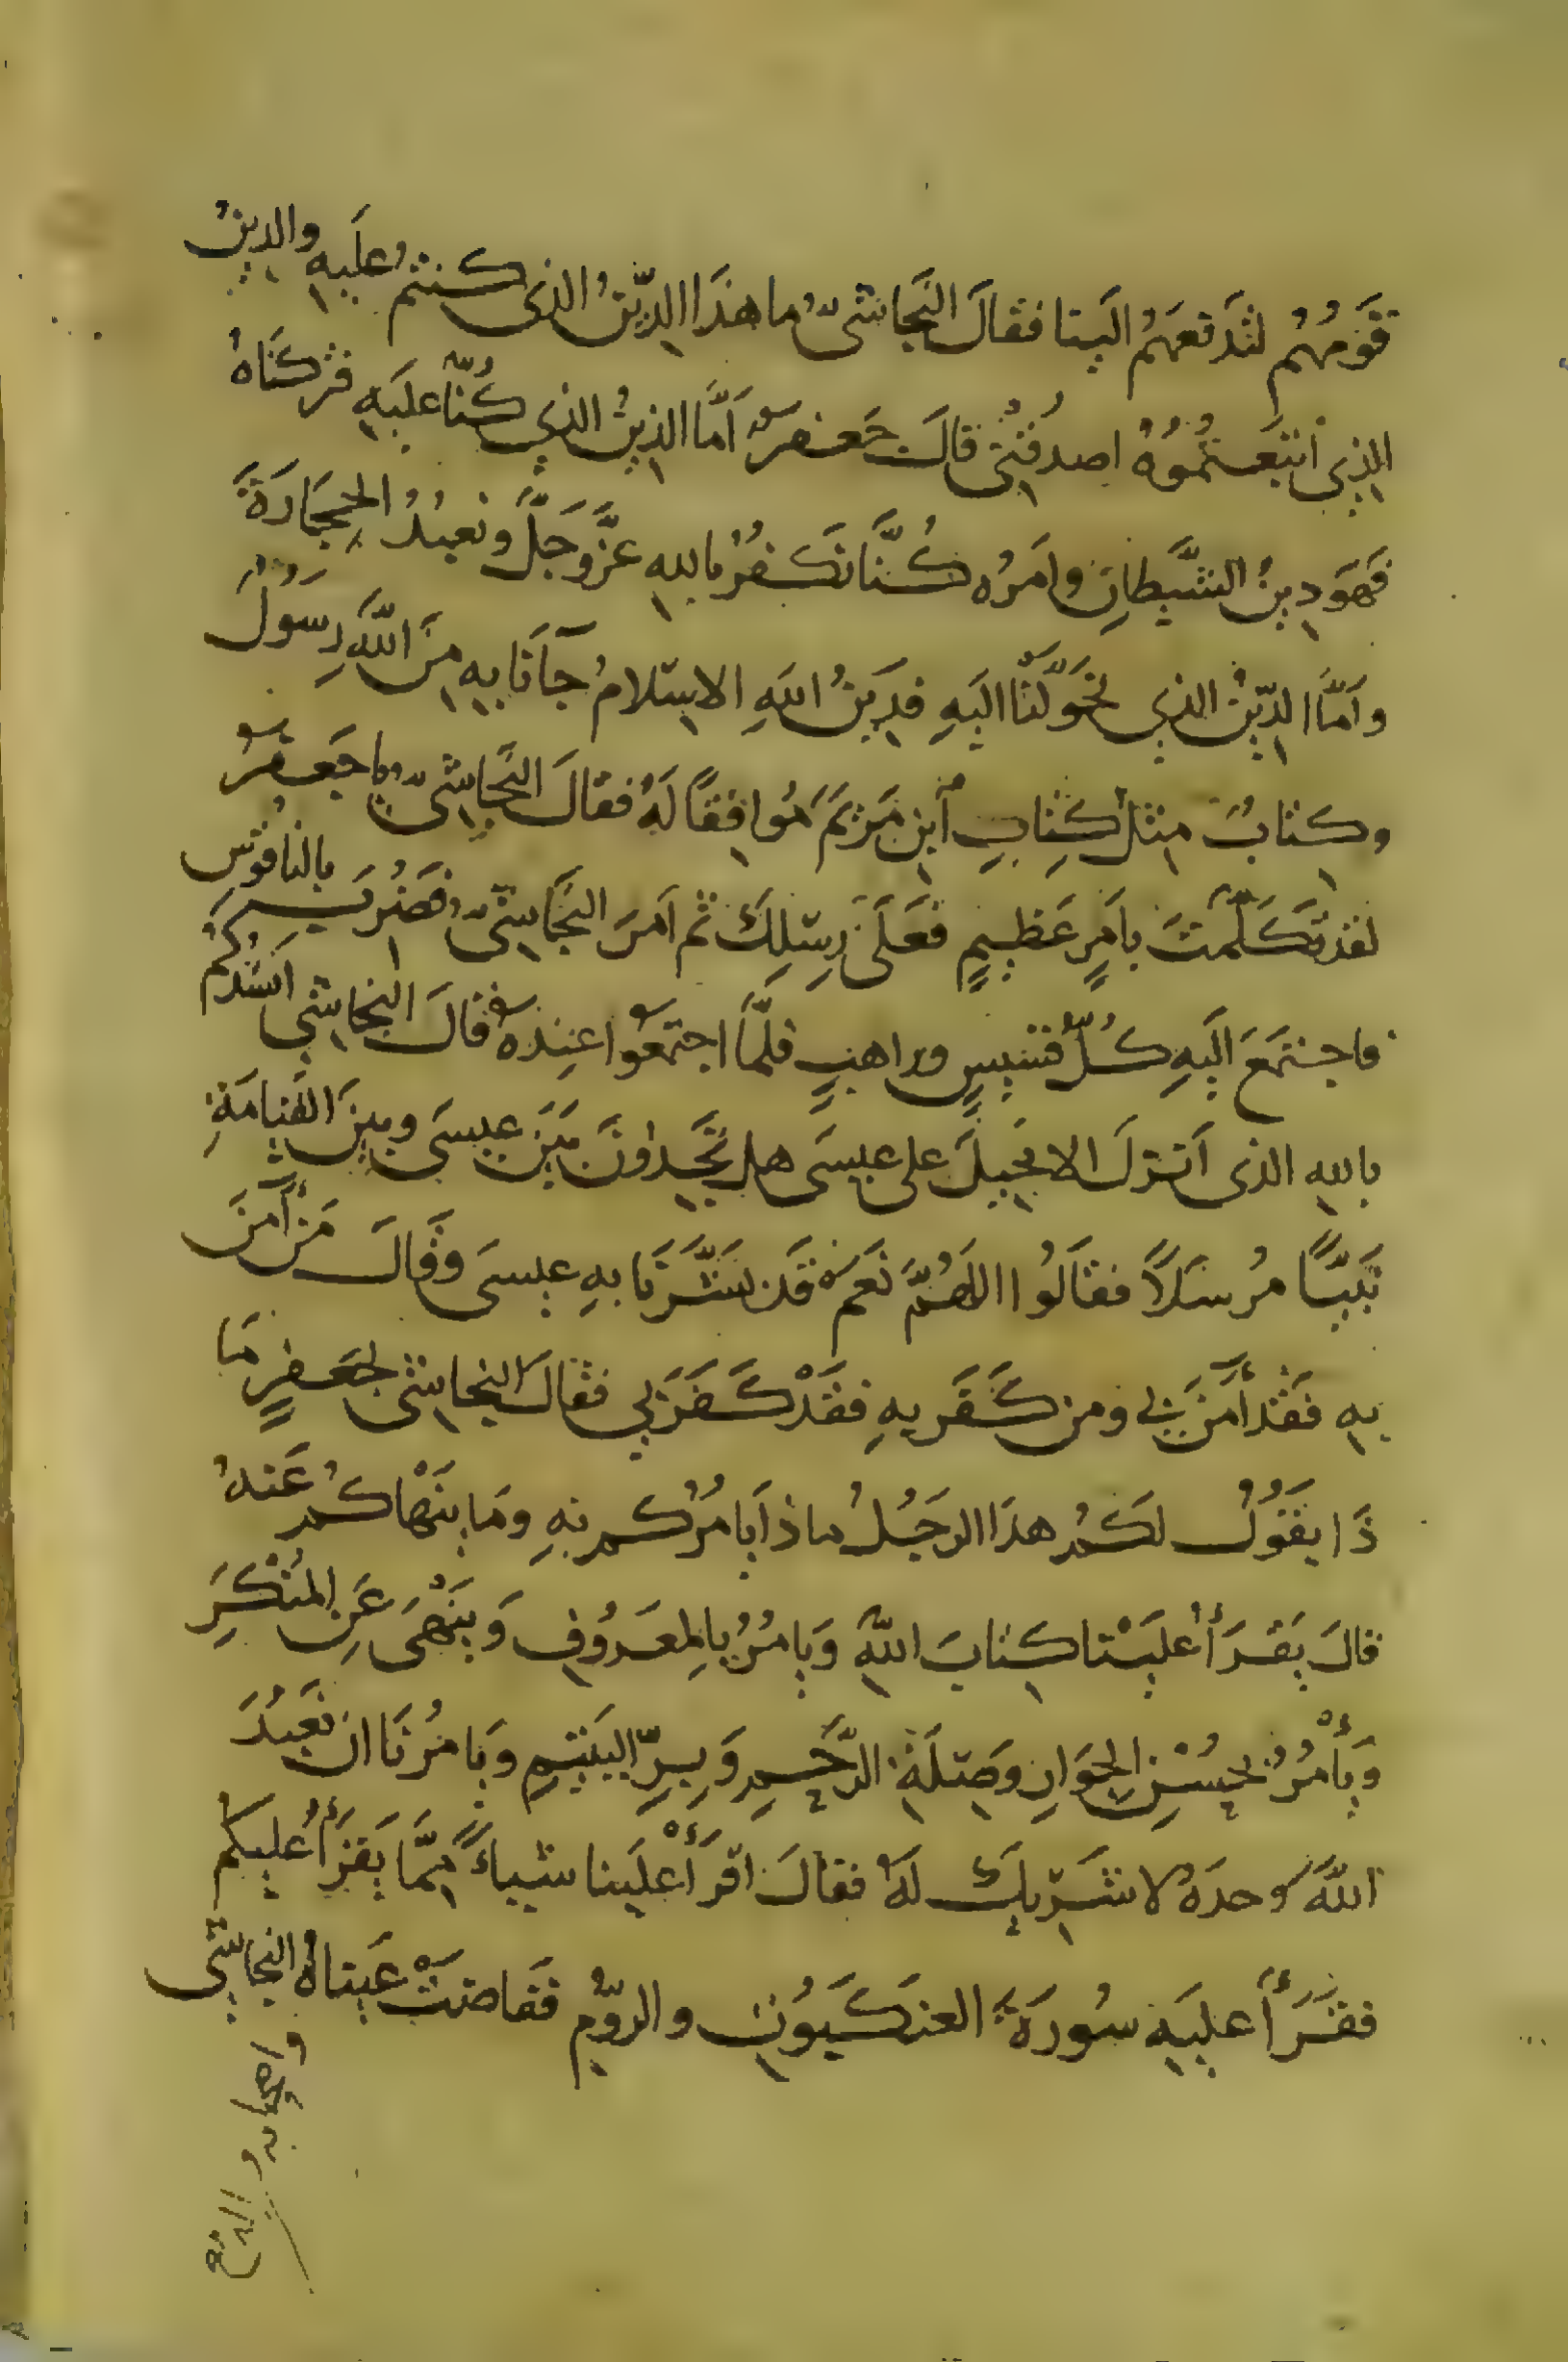 قَوْمُهُمْ لتَدفعَهُمْ الَينا فقالَ النَّجَاشىُّ ما هذَا الدِّينُ الذى كنتمْ علَيهِ والدينُ
الذِي اتّبَعْتُمُوهُ اصدقْنِى قالَ جَعفرٌ اَمَّا الدينُ الذِي كُنَّا علَيهِ فتركنَاهُ
فَهوَ دِينُ الشَّيطانِ وامَرُه كُنَّا نَكفُرُ باللهِ عزَّ وجَلَّ ونعبُدُ الحِجَارَةَ
واَمَّا الدِّينُ الذِي تحَوَّلْنَا اليَهِ فدِينُ اللهِ الاِسْلامُ جآنَا بِهِ مِنَ اللّهِ رسَوُلٌ
وكتابٌ مِثل كِتابِ اَبنِ مَريَمَ مُوافِقًا لَهُ فقالَ النَّجَاشىُّ يا جَعفرُ
لقد تكَلَّمتَ بِاَمرٍ عَظِيمٍ فعَلَى رِسْلِكَ ثم اَمرَ النَّجَاشىُّ فضُرِبَ بالناقوُسِ
فاجتمَعَ الَيهِ كُلُّ قسّيسٍ وراهبٍ فلَمَّا اجتَمعَوُا عِندهُ قالَ النجاشي اَنشدُكُمْ
باللهِ الذى اَنزلَ الاِنجِيلَ على عيسَى هل تَجِدُونَ بَينَ عيسَى وبينَ القيامَةِ
نَبيًّا مُرسَلًا فقالُوا اللّهُمَّ نَعَمْ قَد بَشَّرَنَا بهِ عيسَى وقَالَ مَن أمَنَ
بِهِ فَقَد أمَنَ بِي ومن كَفَر بِهِ فقَدْ كَفَرَ بِي فقالَ النجاشى لجَعفرٍ مَا
ذَا يقَوُلُ لكُم هذَا الرجَلُ ماذا يَامُرُكم بهِ ومَا ينَهْاكُم عَنهُ
قالَ يَقرَأُ علَيْنا كتابَ اللهِ وَيامُرُ بِالمعرُوفِ وَينَهْىَ عَنِ المُنْكَرِ
وَيأمُرُ بحُسْنِ الجِوَارِ وصِلَةِ الرَّحِمِ وَبِرِّ اليَتيمِ وَيامُرُنَا ان نَعبُدَ
اللهَ وحدَهُ لا شَرِيكَ لَهُ فقالَ اقرَأْ علَينا شياءً مِمَّا يَقرَأُ عليكم
فقَرَأَ علَيهِ سُورَةَ العنكَبُوُتِ والرُّومِ ففَاضَتْ عَيناهُ النجاشى
واصحابه و